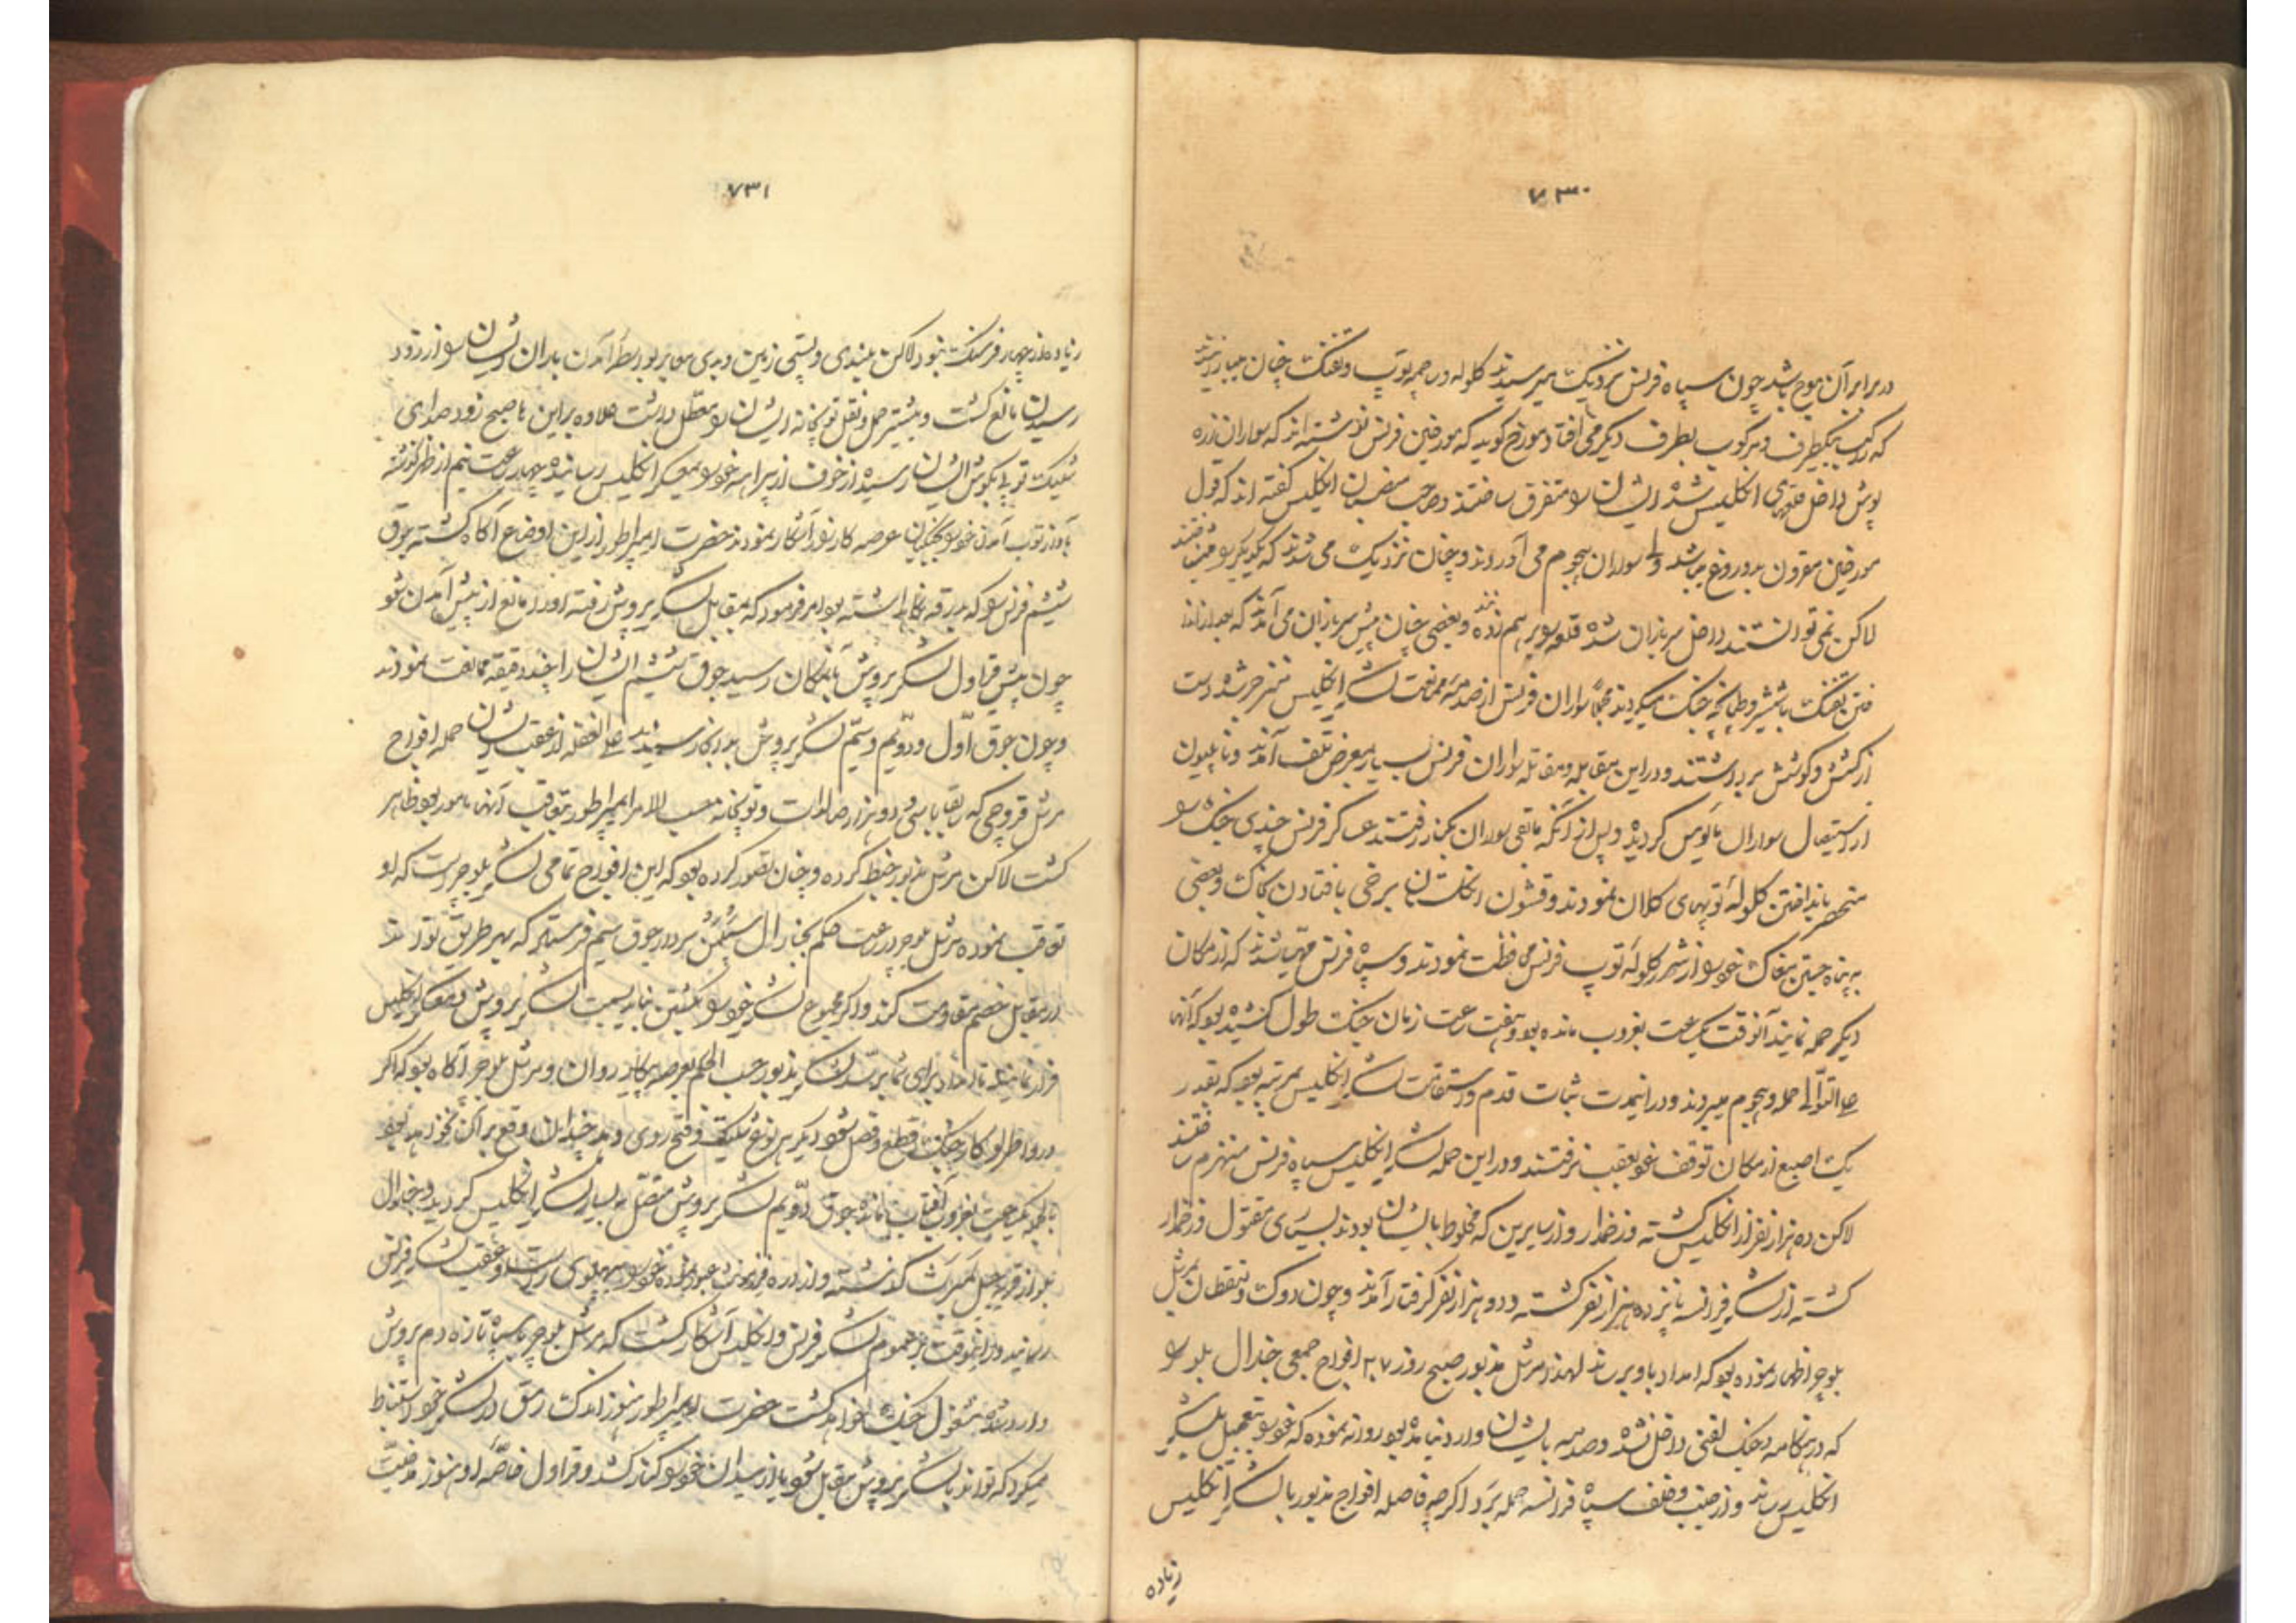 ۷۳۰
در برابر آن موج باشد چون سپاه فرنس نزدیک میرسیدند کلوله و رجمه توپ و تفنک چنان میباریدند
که راکب بیکطرف و مرکوب بطرف دیگر می افتاد مورخ کوید که مورخین فرنس نوشته اند که سواران زره
پوش داخل قلعهای انکلیس شده ایشان را متفرق ساختند و صاحب منصبان انکلیس کفته اند که قول
مورخین مقرون بدروغ میباشد ولی سواران هجوم می آوردند و چنان نزدیک می شدند که یکدیگر را
لاکن نمی توانستند داخل سربازان شده قلعه را برهم زنند و بعضی چنان پیش سربازان می آمدند که بعد از انداختن
تفنک با شمشیر و طپانچه جنک میکردند مجملا سواران فرنس از صدمه ممانعت لشکر انکلیس منزجر شده دست
از کشش و کوشش برداشتند و در این مقابله و مقاتله سواران فرنس بسیار بمعرض تلف آمدند و ناپلیون
از استیصال سواران مایوس کردید و پس از آنکه مابقی سواران بکنار رفتند عساکر فرنس چندی جنک را
منحصر بانداختن کلوله توپهای کلان نمودند و قشون انکلستان برخی بافتادن بخاک و بعضی
به پناه جستن بمغاک خود را از شر کلوله توپ فرنس محافظت نمودند و سپاه فرنس مهیا شدند که از مکان
دیگر حمله نمایند آنوقت یکساعت بغروب مانده بود و هفت ساعت زمان جنک طول کشیده بود که آنها
علی التوالی حمله و هجوم میبردند و در اینمدت ثبات قدم و استقامت لشکر انکلیس بمرتبه بود که بقدر
یک اصبع از مکان توقف خود بعقب نرفتند و در این حمله لشکر انکلیس سپاه فرنس را منهزم ساختند
لاکن ده هزار نفر از انکلیس کشته و زخمدار و از سایرین که مخلوط با ایشان بودند بسیاری مقتول و زخمدار
کشته از لشکر فرانسه پانزده هزار نفر کشته و دو هزار نفر گرفتار آمدند و چون دوک ولنقطان بمرشل
بلوچر اظهار نموده بود که امداد باو برساند لهذا مرشل مذبور صبح روز ۲۷ افواج جمعی جنرال بلو را
که در هنکامه جنک لقنی داخل نشده و صدمه بایشان وارد نیامده بود روانه نموده که خود را بتعجیل بلشکر
انکلیس رساند و از جنب و خلف سپاه فرانسه حمله برد اگرچه فاصله افواج مذبور با لشکر انکلیس
زیاده
۷۳۱
زیاده از چهار فرسنک نبود لاکن بلندی و پستی زمین و بدی معابر بواسطه آمدن باران ایشان را از زود
رسیدن مانع کشت و بیشتر حمل و نقل توپخانه ایشان را معطل داشت علاوه بر این تا صبح زود صدای
شلیک توپ بکوش ایشان رسیده از خوف از بیراهه خود را بمعسکر انکلیس رسانیده چهار ساعت و نیم از ظهر گذشته
عرصه کارزار آشکار نمودند حضرت ایمپراطور از این اوضاع آکاه کشته جوق
ششم فرنس را که بدرقه نکاه داشته بود امر فرمود که بمقابل لشکر پروش رفته او را مانع از پیش آمدن شود
چون پیش قراول لشکر پروش بآنمکان رسید جوق ششم ایشان را چند دقیقه ممانعت نمودند
و چون جوق اول و دویم و سیم لشکر پروش بدانجا رسیدند علی الغفله از عقب ایشان حمله افواج
مرشل قروچی که با سی و دو هزار صالدات و توپخانه حسب الامر ایمپراطور بتعاقب آنها مامور بود ظاهر
کشت لاکن مرشل مذبور خبط کرده و چنان تصور کرده بود که این افواج تمامی لشکر بلوچر است که او
تعاقب نموده مرشل بلوچر در ساعت حکم بجنرال سیلمن سردار جوق سیم فرستاد که بهر طریق تواند
در مقابل خصم مقاومت کند و اگر مجموع لشکر خود را بکشتن نباید لشکر پروش و معسکر انکلیس
فرار نمایند تا امداد برای شما برسد لشکر مذبور حسب الحکم بعرصه پیکار روان و مرشل بلوچر آکاه بود که اگر
در واطرلو کار جنک قطع و فصل شود دیگر هر نوع شکست و فتح روی دهد چندان وقع بر آن نخواهد بود
بالجمله یکساعت بغروب آفتاب مانده جوق دویم لشکر پروش متصل به یسار لشکر انکلیس کردید و جنرال
بلو از قریه کذشته و از دره عبور نموده خود را به پهلوی راست و عقب لشکر فرنس
رسانید و در اینوقت بر عموم لشکر فرنس و انکلیس آشکار کشت که مرشل بلوچر با سپاه تازه دم پروش
وارد شده مشغول جنک خواهد کشت حضرت ایمپراطور هنوز اندک رمق در لشکر خود استنباط
میکرد که تواند با لشکر پروش مقابل شود یا از میدان خود را کنار کشد و قراول خاصه او هنوز